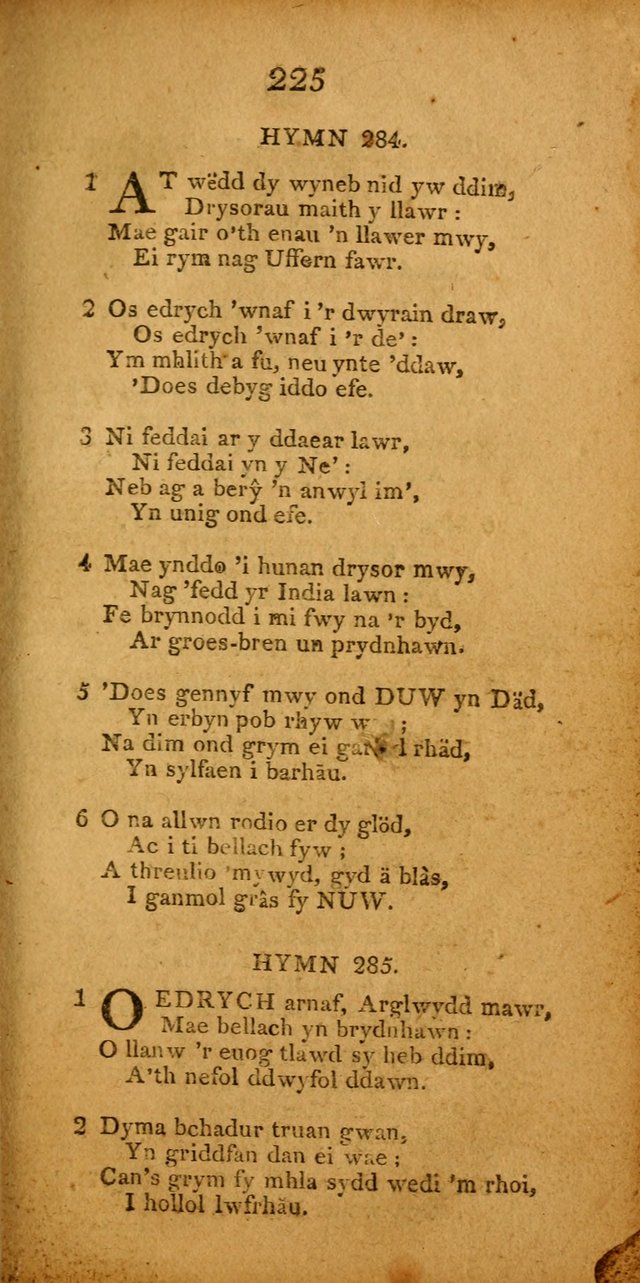 225
HYMN 284.
1 AT wëdd dy wyneb nid yw ddim,
Drysorau maith y llawr :
Mae gair o'th enau 'n llawer mwy,
Ei rym nag Uffern fawr.
2 Os edrych 'wnaf i 'r dwyrain draw,
Os edrych 'wnaf i 'r de' :
Ym mhlith a fu, neu ynte 'ddaw,
'Does debyg iddo efe.
3 Ni feddai ar y ddaear lawr,
Ni feddai yn y Ne' :
Neb ag a berŷ 'n anwyl im',
Yn unig ond efe.
4 Mae ynddo 'i hunan drysor mwy,
Nag 'fedd yr India lawn :
Fe brynnodd i mi fwy na 'r byd,
Ar groes-bren un prydnhawn.
5 'Does gennyf mwy ond DUW yn Däd,
Yn erbyn pob rhyw ;
Na dim ond grym ei rhäd,
Yn sylfaen i barhäu.
6 O na allwn rodio er dy glöd,
Ac i ti bellach fyw ;
A threulio 'mywyd, gyd ä blâs,
I ganmol grâs fy NUW.
HYMN 285.
1 OEDRYCH arnaf, Arglwydd mawr,
Mae bellach yn brydnhawn :
O llanw 'r euog tlawd sy heb ddim,
A'th nefol ddwyfol ddawn.
2 Dyma bchadur truan gwan,
Yn griddfan dan ei wae ;
Can's grym fy mhla sydd wedi 'm rhoi,
I hollol lwfrhäu.